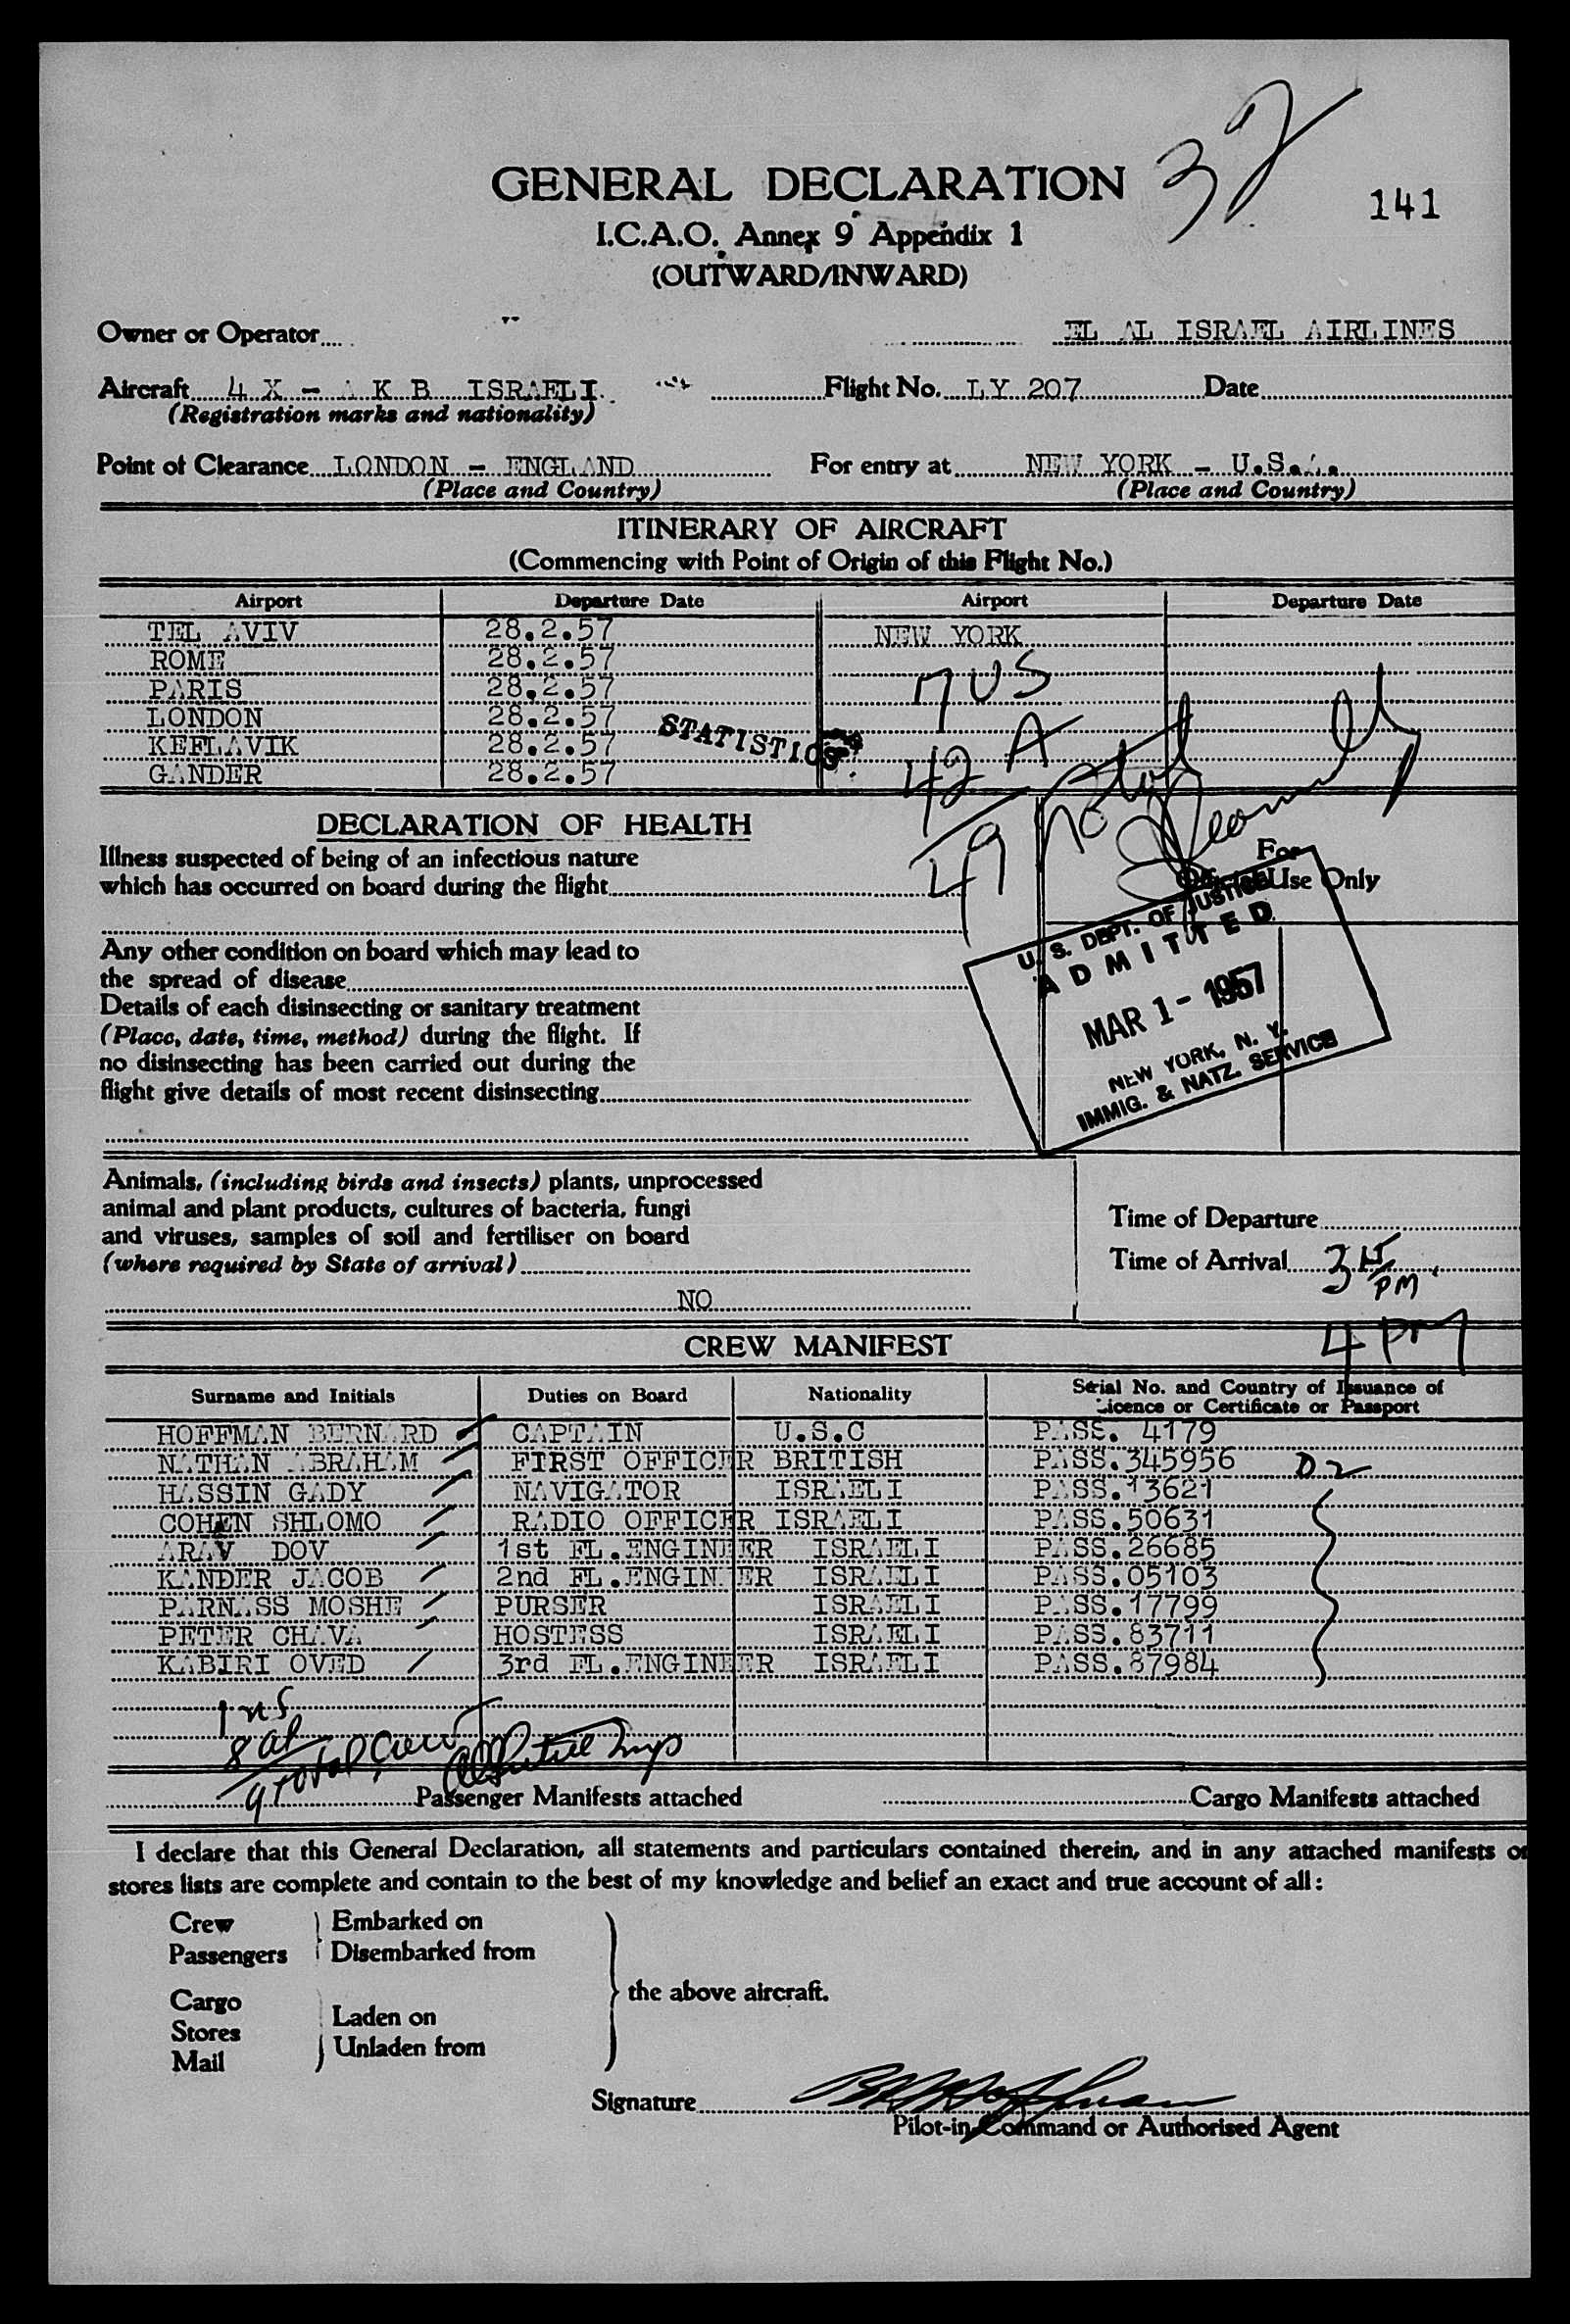 32
141
GENERAL DECLARATION
I.C.A.O. Annex 9 Appendix 1
(OUTWARD/INWARD)
Owner or Operator EL AL ISRAEL AIRLINES
Aircraft 4 X - A K B ISRAELI Flight No. LY 207 Date
(Registration marks and nationality)
Point of Clearance LONDON - ENGLAND For entry at NEW YORK - U.S.A.
(Place and Country) (Place and Country)
ITINERARY OF AIRCRAFT
(Commencing with Point of Origin of this Flight No.)
Airport Departure Date Airport Departure Date
TEL AVIV 28.2.57 NEW YORK
ROME 28.2.57
PARIS 28.2.57 7 US
LONDON 28.2.57
KEFLAVIK 28.2.57 STATISTICS 42 A
GANDER 28.2.57
49 Total
DECLARATION OF HEALTH
Illness suspected of being of an infectious nature
which has occurred on board during the flight
For
Official Use Only
Any other condition on board which may lead to
the spread of disease
Details of each disinsecting or sanitary treatment
(Place, date, time, method) during the flight. If
no disinsecting has been carried out during the
flight give details of most recent disinsecting
U. S. DEPT. OF JUSTICE
ADMITTED
MAR 1 - 1957
NEW YORK, N. Y.
IMMIG. & NATZ. SERVICE
Animals, (including birds and insects) plants, unprocessed
animal and plant products, cultures of bacteria, fungi
and viruses, samples of soil and fertiliser on board
(where required by State of arrival)
NO
Time of Departure
Time of Arrival PM
4 PM
CREW MANIFEST
Surname and Initials Duties on Board Nationality Serial No. and Country of Issuance of
Licence or Certificate or Passport
HOFFMAN BERNARD CAPTAIN U.S.C PASS. 4179
NATHAN ABRAHAM FIRST OFFICER BRITISH PASS.345956 D2
HASSIN GADY NAVIGATOR ISRAELI PASS.13621
COHEN SHLOMO RADIO OFFICER ISRAELI PASS.50631
ARAV DOV 1st FL.ENGINEER ISRAELI PASS.26685
KANDER JACOB 2nd FL.ENGINEER ISRAELI PASS.05103
PARNASS MOSHE PURSER ISRAELI PASS.17799
PETER CHAVA HOSTESS ISRAELI PASS.83711
KABIRI OVED 3rd FL.ENGINEER ISRAELI PASS.87984
8 al
9 Total Crew
Passenger Manifests attached Cargo Manifests attached
I declare that this General Declaration, all statements and particulars contained therein, and in any attached manifests or
stores lists are complete and contain to the best of my knowledge and belief an exact and true account of all:
Crew Embarked on
Passengers Disembarked from
the above aircraft.
Cargo
Stores Laden on
Mail Unladen from
Signature
Pilot-in-Command or Authorised Agent